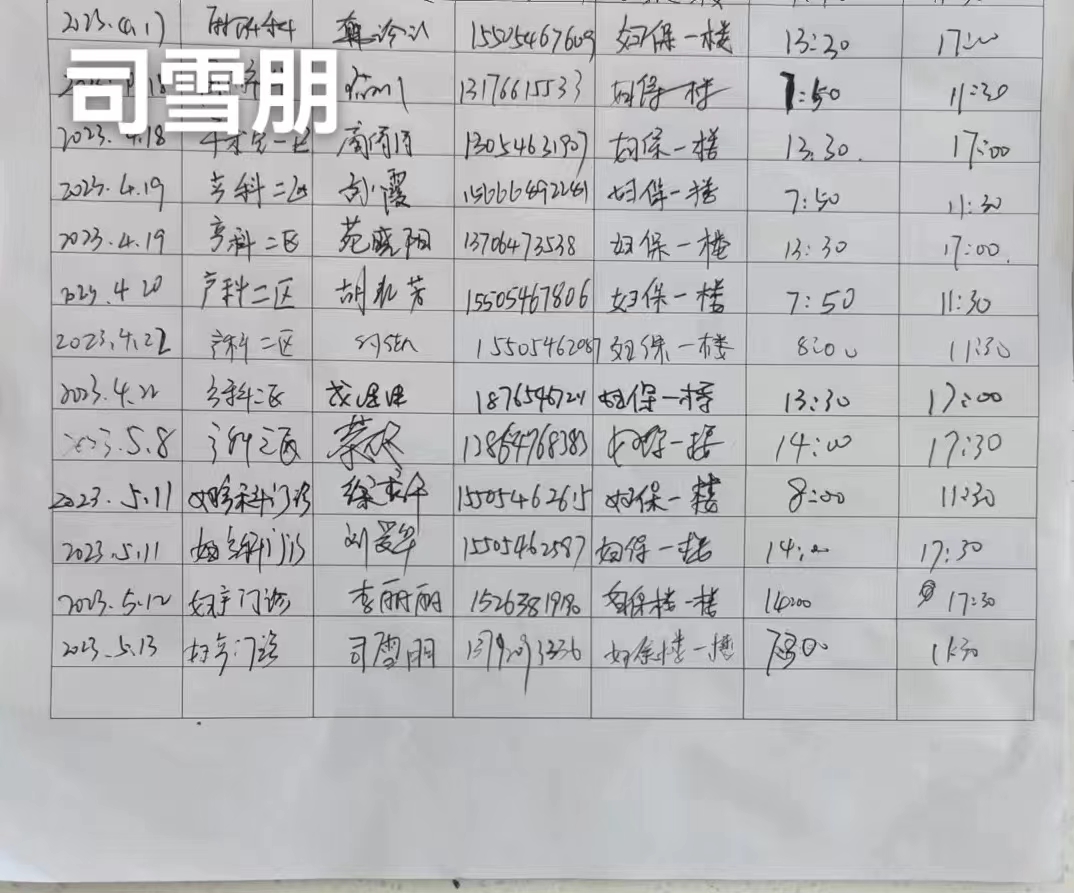 2023.4.17 15505467609 妇保一楼 13:30 17:00
司雪朋
13176615533 妇保一楼 7:50 11:30
2023.4.18 13054631907 妇保一楼 13:30 17:00
2023.4.19 产科二区 妇保一楼 7:50 11:30
2023.4.19 产科二区 苑晓阳 13706473538 妇保一楼 13:30 17:00
2023.4.20 产科二区 胡 芳 15505467806 妇保一楼 7:50 11:30
2023.4.22 产科二区 15505462087 妇保一楼 8:00 11:30
2023.4.22 产科二区 1876546721 妇保一楼 13:30 17:00
2023.5.8 产科二区 13864768383 妇保一楼 14:00 17:30
2023.5.11 科门诊 15505462615 妇保一楼 8:00 11:30
2023.5.11 科门诊 刘爱华 15505462587 妇保一楼 14:00 17:30
2023.5.12 妇产门诊 李丽丽 妇保楼一楼 14:00 17:30
2023.5.13 妇产门诊 司雪朋 妇保楼一楼 11:30